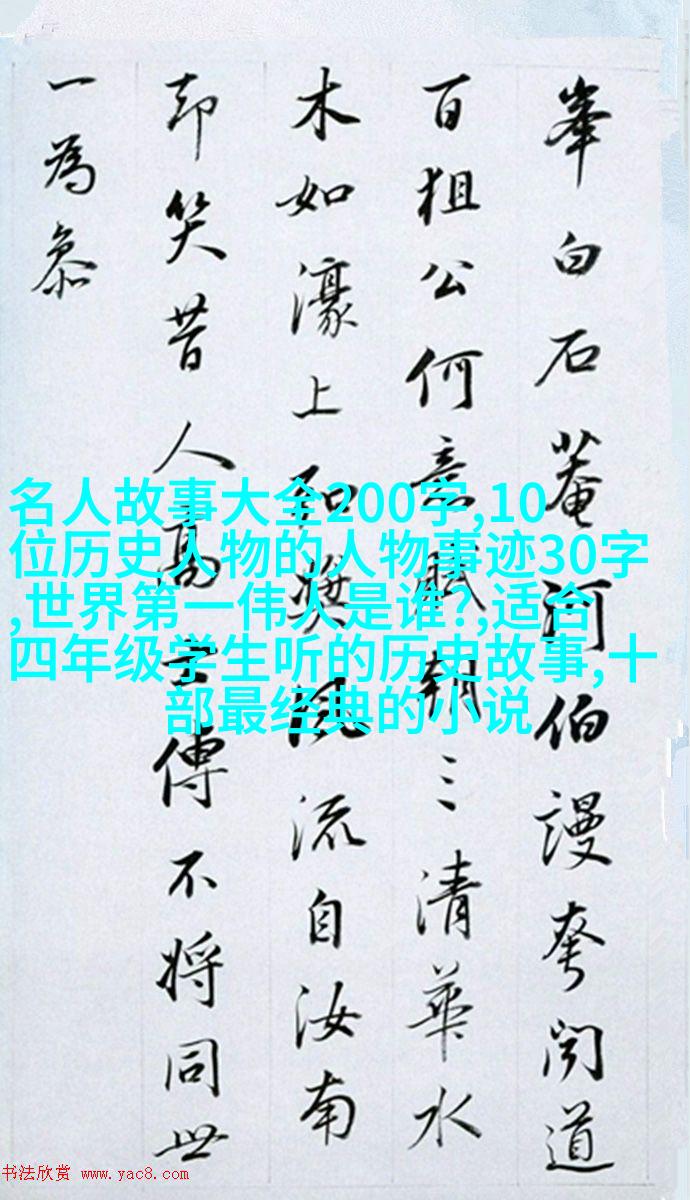 峯白石菴河伯謾夸闻道
百狙公何意賦朝三清華水
木如濠上弘奬風流自汝南
却笑昔人高士傳不將同世
一為叅
名人故事大全200字,10
位历史人物的人物事迹30字
,世界第一伟人是谁?,适合
四年级学生听的历史故事,十
部最经典的小说
书法欣赏 www.yac8.com